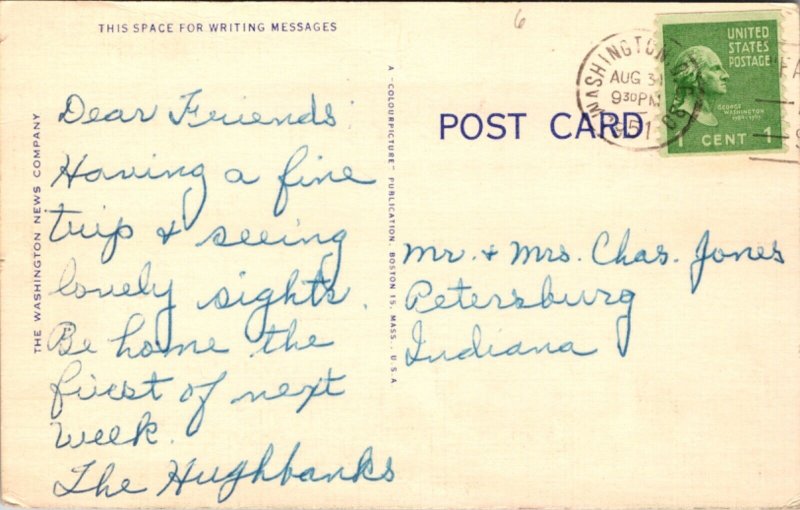 THIS SPACE FOR WRITING MESSAGES
6
Dear Friends:
Having a fine
trip & seeing
lovely sights.
Be home the
first of next
week.
The Hughbanks
THE WASHINGTON NEWS COMPANY
A "COLOURPICTURE" PUBLICATION, BOSTON 15, MASS., U.S.A
POST CARD
WASHINGTON
AUG 31
9 30 PM
1951
UNITED
STATES
POSTAGE
GEORGE
WASHINGTON
1 CENT 1
Mr. & Mrs. Chas. Jones
Petersburg
Indiana